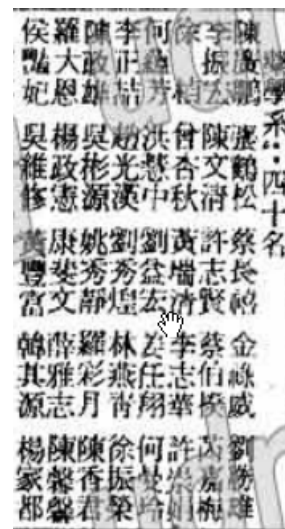 學系：四十名
陳鵬 張鶴松 蔡長禧 金威 劉勝雄
李振宏 陳文清 許志賢 蔡伯 嘉梅
徐楨 曾杏秋 黃瑞清 李志華 許崇娟
何芳 洪慧中 劉益宏 任翔 何玲
李正喆 趙光漢 劉秀煌 林燕青 徐振榮
陳政雄 吳彬源 姚秀靜 羅彩月 陳香君
羅大恩 楊政憲 康斐文 薛雅志 陳馨馨
侯豔妃 吳維修 黃豐富 韓其源 楊家郡